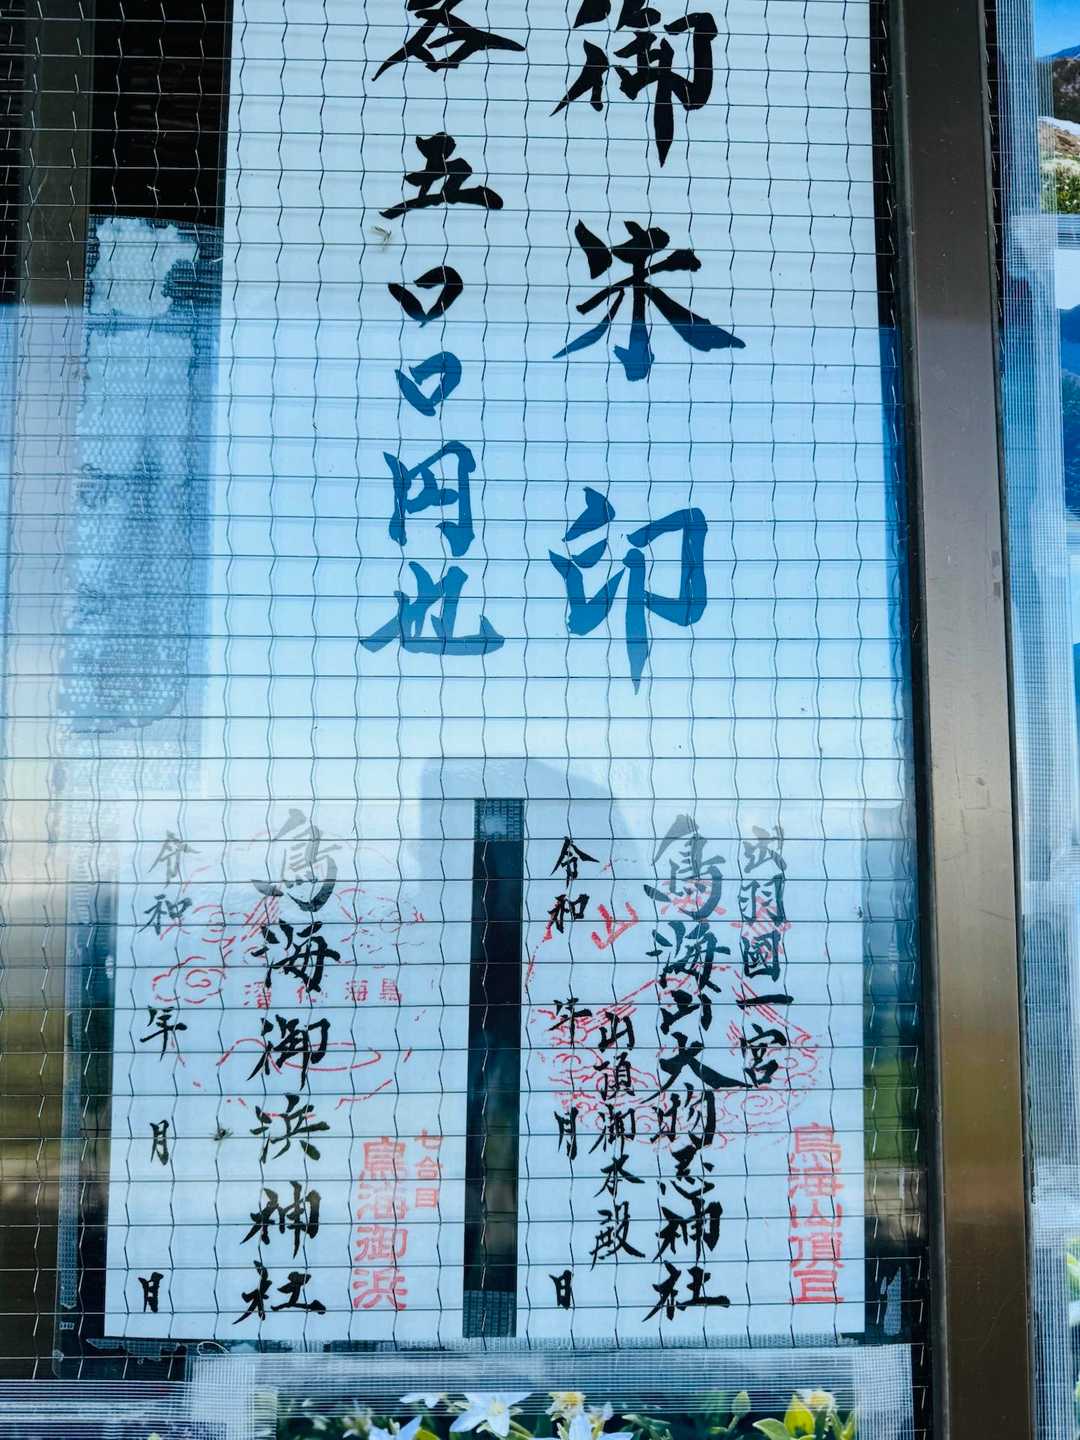 御朱印
各五〇〇円也
出羽國一宮
鳥海山大物忌神社
山頂御本殿
令和 年 月 日
鳥海山頂
鳥海御浜神社
令和 年 月 日
七合目
鳥海御浜